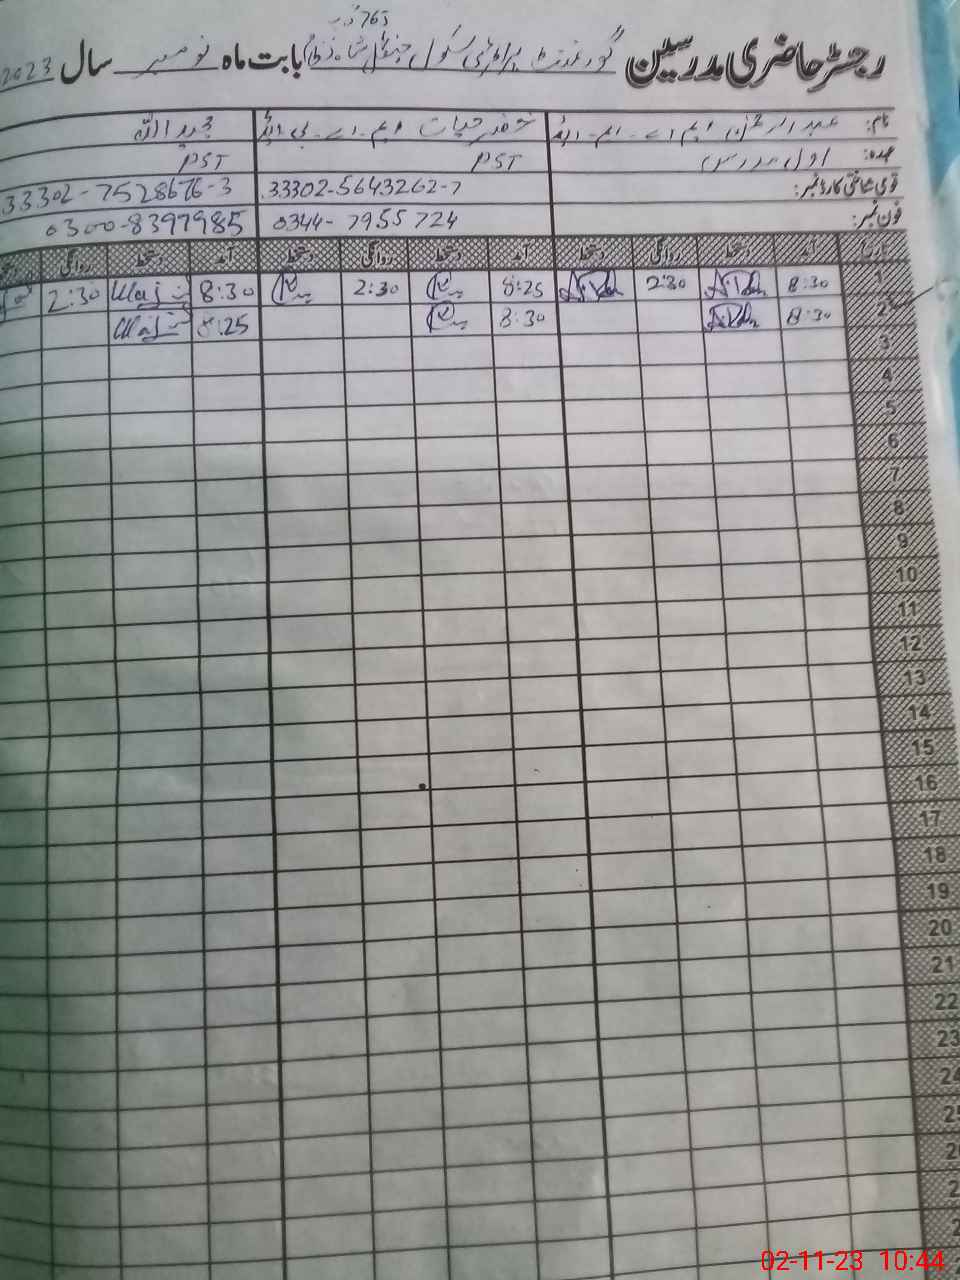 765 گ ب
رجسٹر حاضری مدرسین گورنمنٹ پرائمری سکول شاہ بابت ماہ نومبر سال 2023
نام: عبدالرحمن ایم اے۔ ایم۔ ایڈ خضر حیات ایم۔ اے۔ بی ایڈ حمد اللہ
عہدہ: اول مدرس PST PST
قومی شناختی کارڈ نمبر: 33302-5643262-7 33302-7528676-3
فون نمبر: 0344-7955724 0300-8397985
تاریخ آمد دستخط روانگی دستخط آمد دستخط روانگی دستخط آمد دستخط روانگی
1 8:30 2:30 8:25 2:30 8:30 2:30
2 8:30 8:30 8:25
3
4
5
6
7
8
9
10
11
12
13
14
15
16
17
18
19
20
21
22
23
24
25
02-11-23 10:44